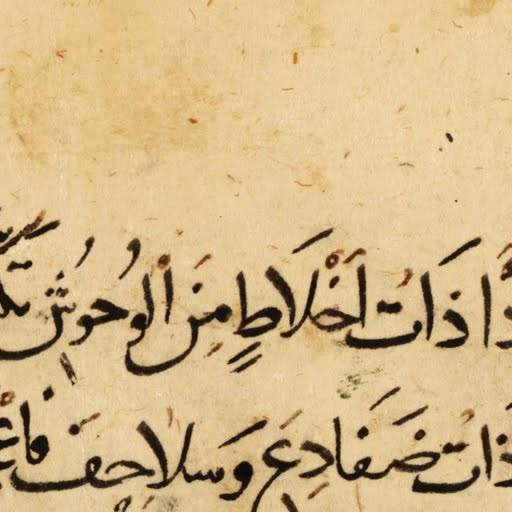 ذَاتُ أَخْلَاطٍ مِنَ الْوُحُوشِ
ذَاتُ ضَفَادِعَ وَسَلَاحِفَ